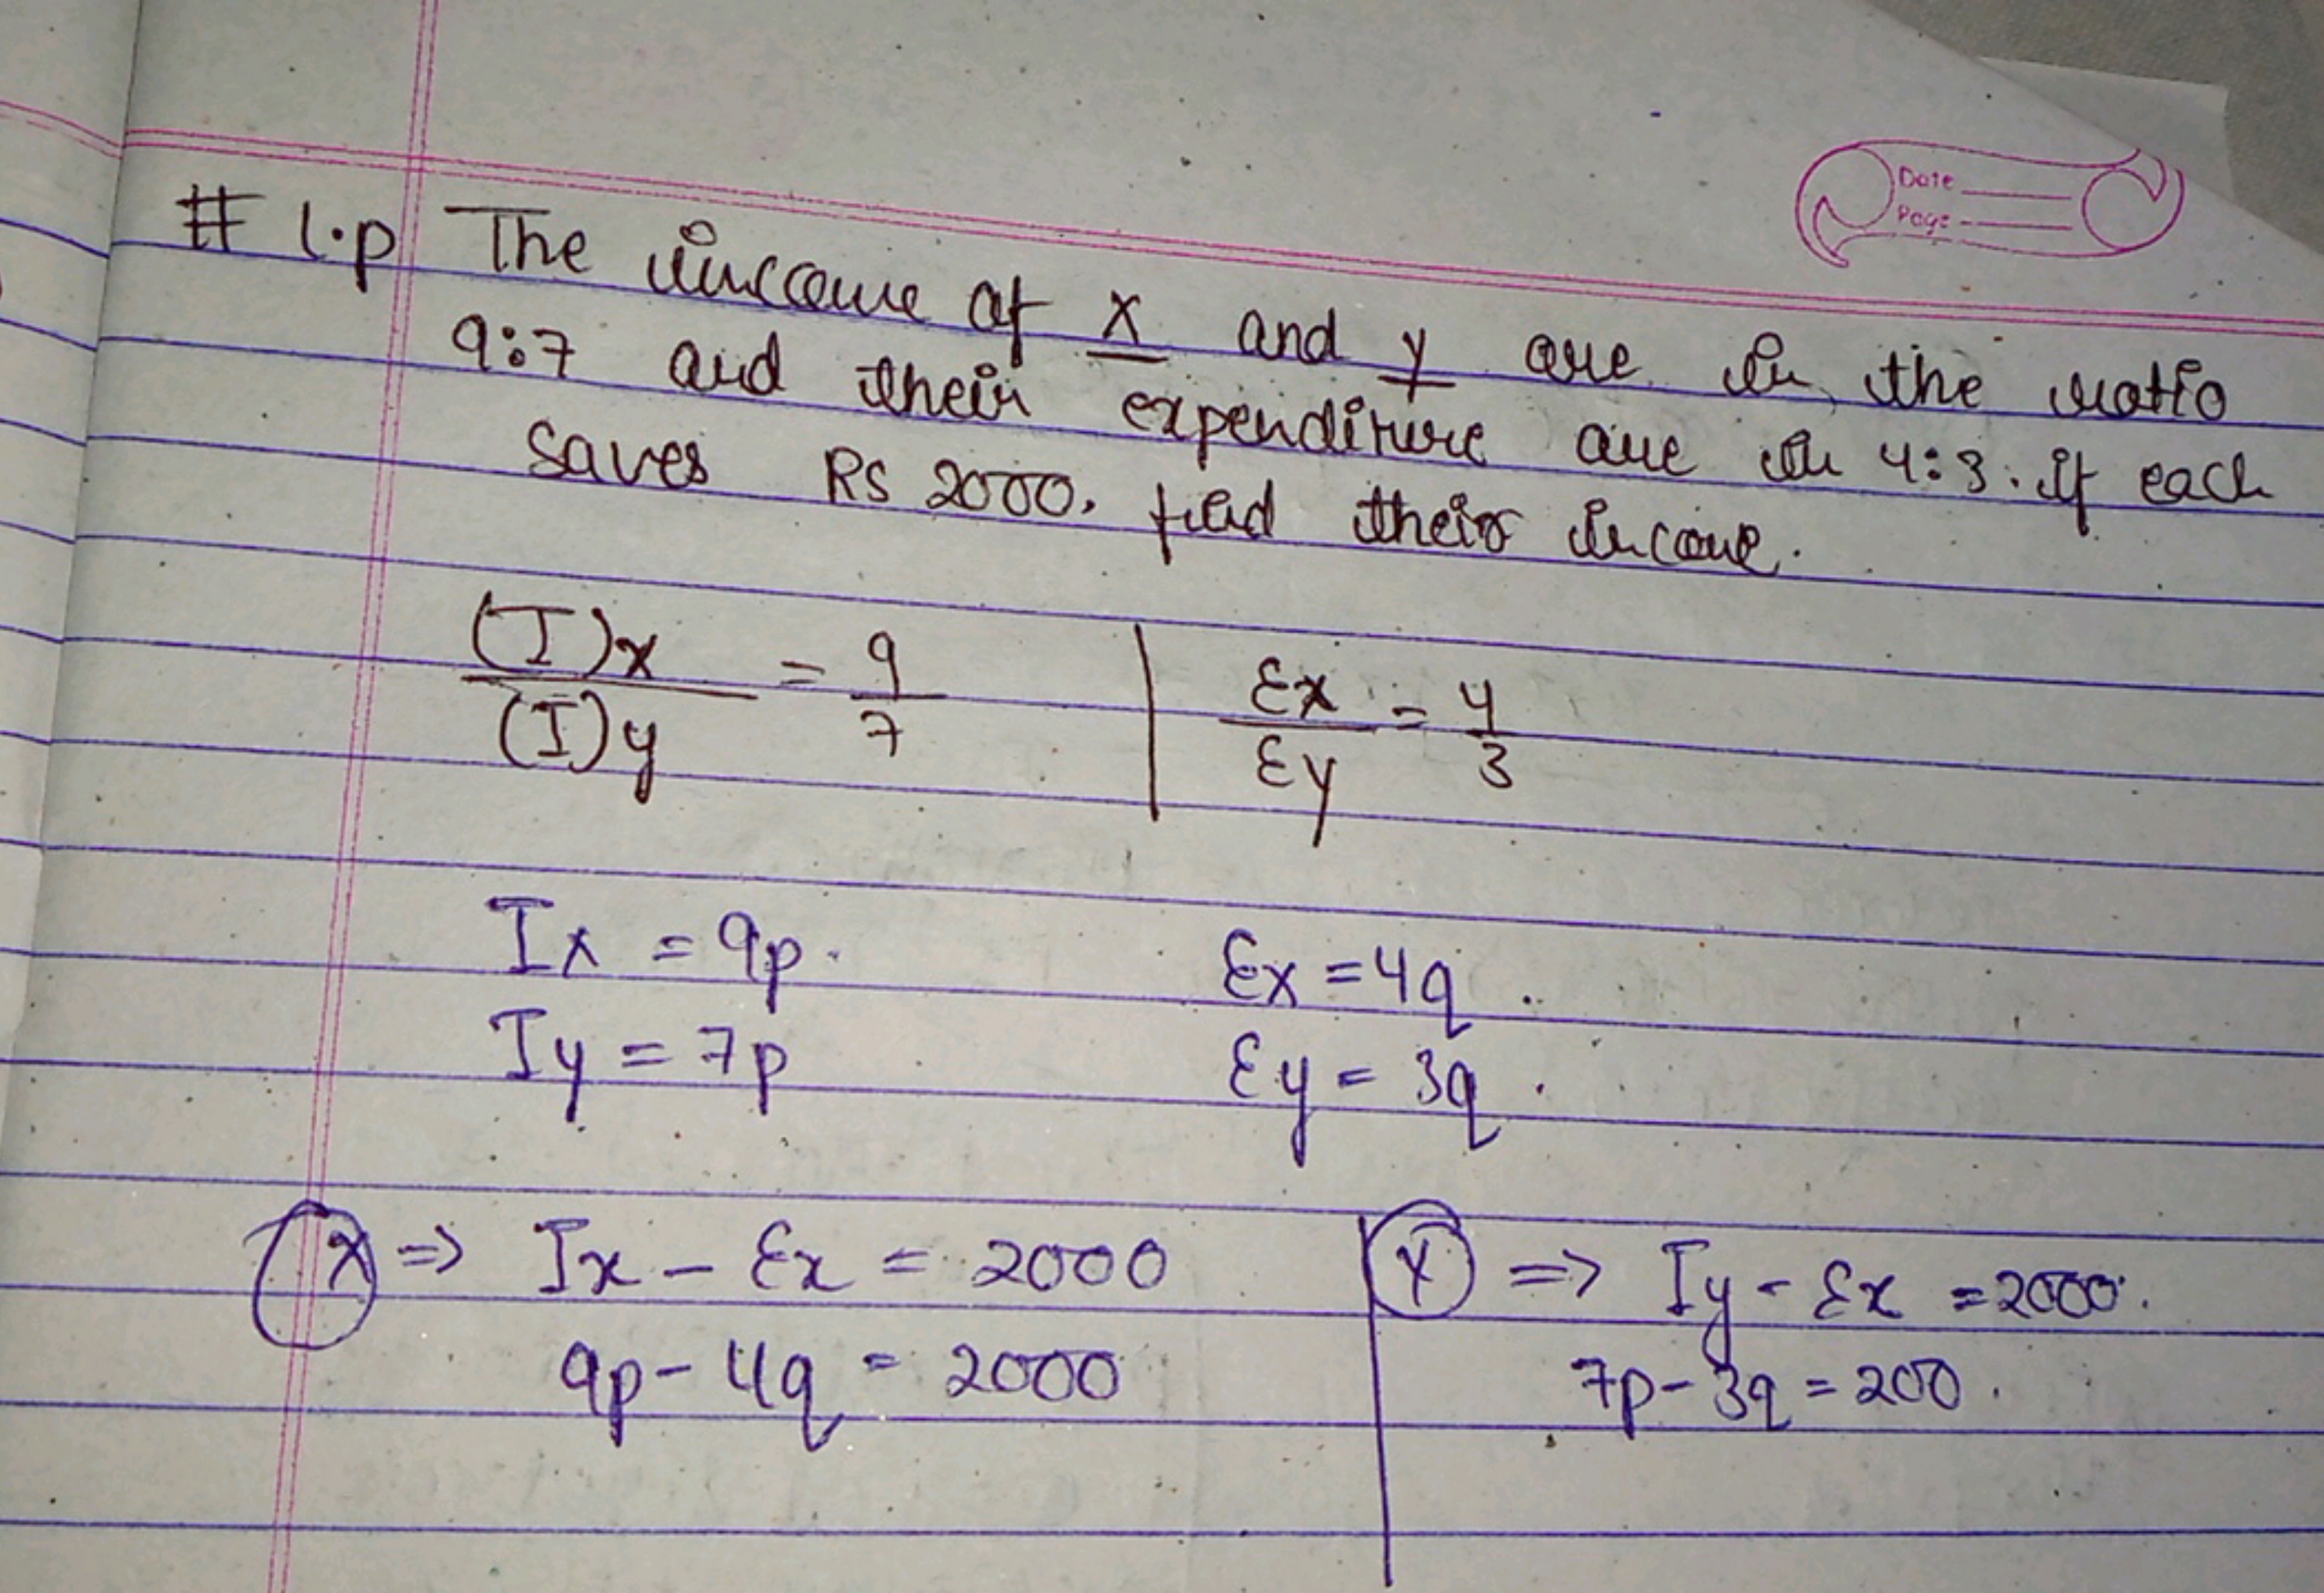 Date
Page
# l.p The income of x and y are in the ratio
9:7 and their expenditure are in 4:3. if each
saves RS 2000. find their income.
(I)x / (I)y = 9/7 | Ex / Ey = 4/3
Ix = 9p. Ex = 4q.
Iy = 7p Ey = 3q.
x => Ix - Ex = 2000 | y => Iy - Ex = 2000.
9p - 4q = 2000 | 7p - 3q = 200.